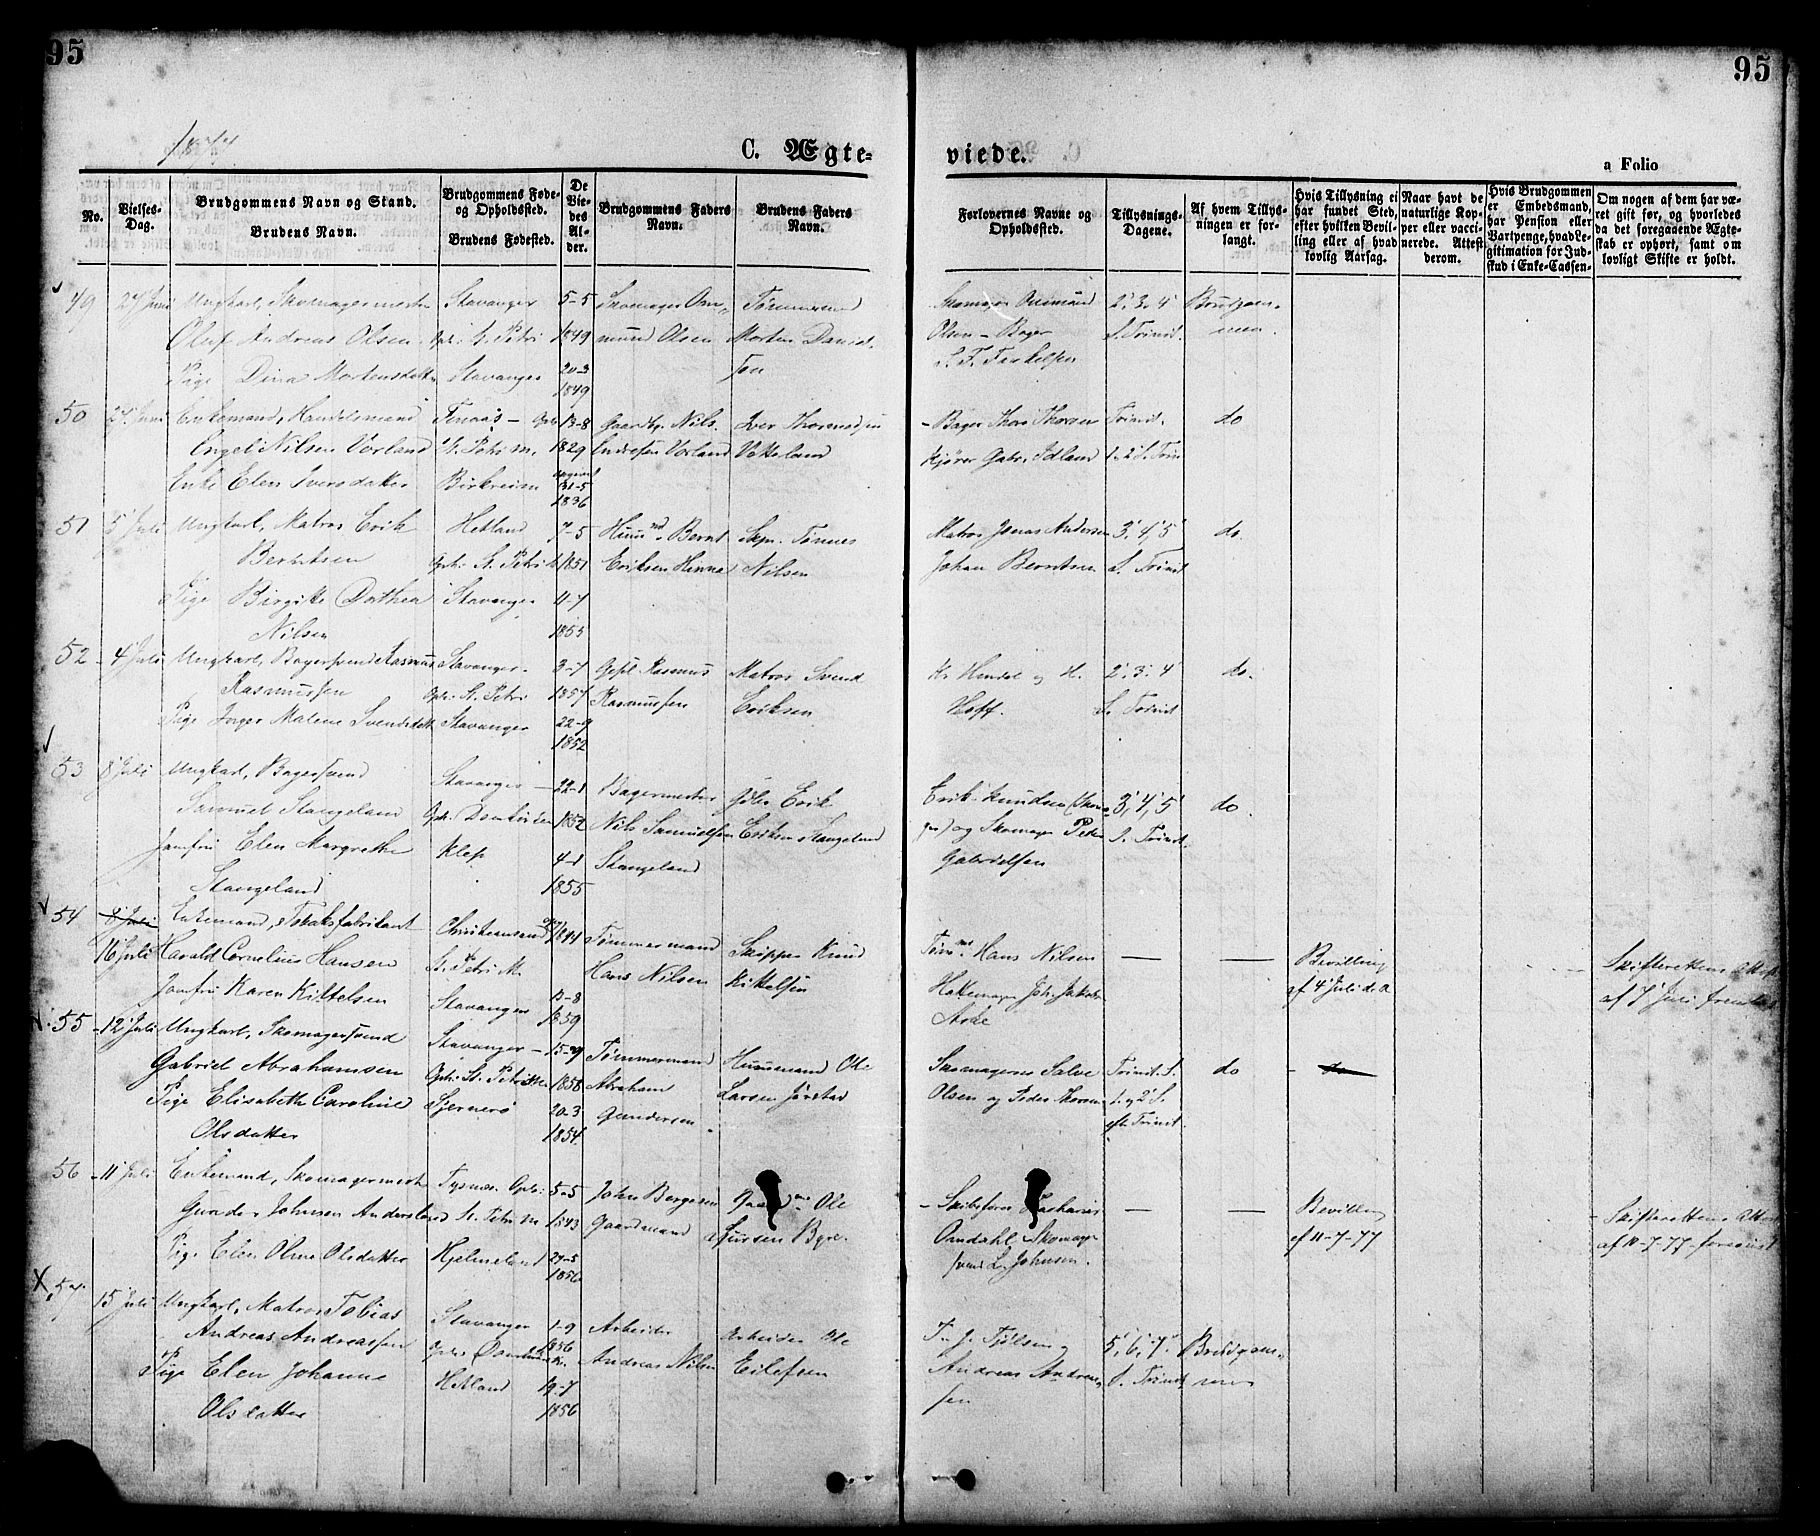 95
95
1877
C. Ægte-
viede.
a Folio
No.
Vielses-
Dag.
Brudgommens Navn og Stand.
Brudens Navn.
Brudgommens Føde-
og Opholdssted.
Brudens Fødested.
De
Vie-
des
Al-
der.
Brudgommens Faders
Navn.
Brudens Faders
Navn.
Forlovernes Navne og
Opholdssted.
Tillysnings-
Dagene.
Af hvem Tillys-
ningen er for-
langt.
Hvis Tillysning ei
har fundet Sted,
efter hvilken Bevil-
ling eller af hvad
lovlig Aarsag.
Naar havt de
naturlige Kop-
per eller vacci-
nerede. Attest
derom.
Hvis Brudgommen
er Embedsmand,
har Pension eller
Vartpenge, hvad Le-
gitimation for Ind-
skud i Enke-Cassen-
Om nogen af dem har væ-
ret gift før, og hvorledes
da det foregaaende Ægte-
skab er ophørt, samt om
lovligt Skifte er holdt.
49 24 Juni Ungkarl, Skomagermester Stavanger 5-5 Skomager Om- Tømmermand
Oluf Andreas Olsen Oph. St. Petri 1849 mund Olsen Morten Daniel-
Pige Dina Mortensdatter Stavanger 20-3 sen
1849
Skomager Ommund 2', 3', 4' Brudgom-
Olsen - Bager S. Trinit. men
50 24 Juni Enkemand, Handelsmand 13-8 Gaardbr. Nils
Engel Nilsen Vorland St. Petri M. 1829 Endresen Vorland
Enke Elen Iversdatter Birkreim 31-5
1836
Bager Thore Thorsen Trinit. do
Kjører Gabr. Idland 1', 2' S. Trin
51 5' Juli Ungkarl, Matros Erik Hetland 7-5 Huusmd. Bernt Skpr. Tønnes
Berntsen Oph: St. Petri M 1851 Eriksen Hinna Nilsen
Pige Birgitte Dorthea Stavanger 11-7
Nilsen 1855
Matros Jonas Andersen 3', 4', 5' do.
Johan Berntsen S. Trinit
52 4' Juli Ungkarl, Bagersvend Rasmus Stavanger 3-7 Rasmus Matros Svend
Rasmussen Oph. St. Petri 1854 Rasmussen Eriksen
Pige Malene Svendsdatter Stavanger 22-9
1852
2', 3', 4' do.
Hoff. S. Trinit
53 8' Juli Ungkarl, Bagersvend Stavanger 22-1 Bagermester Erik
Samuel Stangeland Oph. Domkirken 1852 Nils Samuelsen Eriksen Stangeland
Jomfru Elen Margrethe Klep 4-1 Stangeland
Stangeland 1855
Erik Knudsen 3', 4', 5' do
og Skomager Peder S. Trinit.
Gabrielsen
54 8' Juli Enkemand, Tobaksfabrikant Christiansund 1841 Tømmermand Skipper Knud
16 Juli Harald Cornelius Hansen St. Petri M. Hans Nilsen Kittelsen
Jomfru Karen Kittelsen Stavanger 13-8
1859
Tøm md. Hans Nilsen — — Bevilling Skifterettens Attest
af 4' Juli d. A af 7' Juli
Aske
55 12' Juli Ungkarl, Skomagersvend Stavanger 15-9 Tømmermand Huusmand Ole
Gabriel Abrahamsen Oph: St. Petri M 1858 Abraham Larsen Jørstad
Pige Elisabeth Caroline Sjernerø 20-3 Gundersen
Olsdatter 1854.
Skomagerne Salve Trinit. S. do do
Olsen og Peder 1' og 2' S.
eft. Trinit.
56 11' Juli Enkemand, Skomagermester Tysnæs Oph: 5-5 John Børgesen Ole
Gunder Johnsen Andersland St. Petri M 1843 Gaardmand Byre.
Pige Elen Oline Olsdatter Hjelmeland 27-5
1856
Skibsfører Zacharias — — Bevilling Skifterettens Attest
Omdahl Skomager af 11-7-77 af 10-7-77
svend L. Johnsen.
57 15 Juli Ungkarl, Matros Tobias Stavanger 1-9 Arbeider Arbeider Ole
Andreas Andreassen Oph: Domkirken 1856 Andreas Nilsen Eilefsen
Pige Elen Johanne Hetland 19-7
Olsdatter 1856
Tjølsen 5', 6', 7' Brudgom-
Andreas Andreas- S. Trinit men
sen